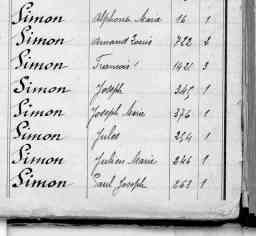 Simon Alphonse Marie 16 1
Simon Armand Louis 722 2
Simon François 1421 3
Simon Joseph 345 1
Simon Joseph Marie 376 1
Simon Jules 254 1
Simon Julien Marie 246 1
Simon Paul Joseph 263 1